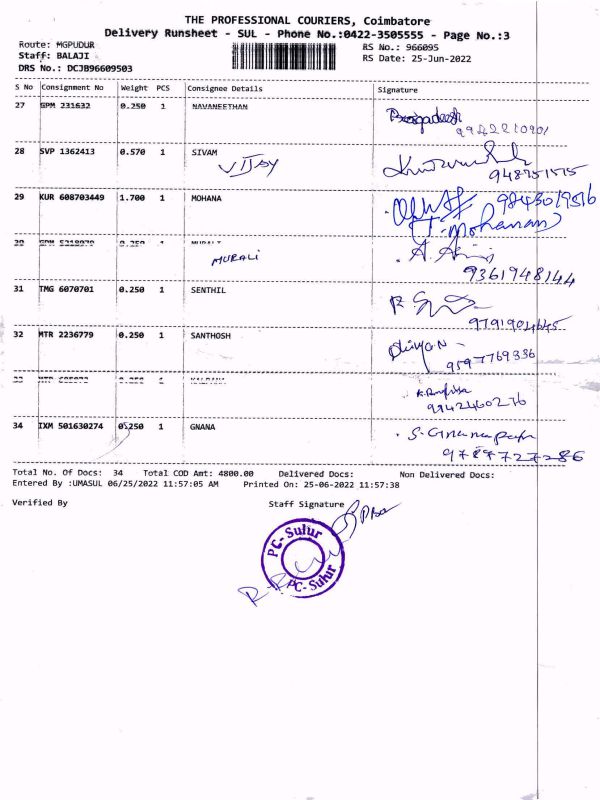 THE PROFESSIONAL COURIERS, Coimbatore
Delivery Runsheet - SUL - Phone No.:0422-3505555 - Page No.:3
Route: MGPUDUR
RS No.: 966095
Staff: BALAJI
RS Date: 25-Jun-2022
DRS No.: DCJB96609503
S No Consignment No Weight PCS Consignee Details Signature
27 GPM 231632 0.250 1 NAVANEETHAN
9942210901
28 SVP 1362413 0.570 1 SIVAM
VIJAY
948751515
29 KUR 608703449 1.700 1 MOHANA
9843019516
T. Mohanan
MURALI
9361948144
31 TMG 6070701 0.250 1 SENTHIL
9791904645
32 MTR 2236779 0.250 1 SANTHOSH
Divya N
9597769336
9942460276
34 IXM 501630274 0.250 1 GNANA
9789727286
Total No. Of Docs: 34 Total COD Amt: 4800.00 Delivered Docs: Non Delivered Docs:
Entered By :UMASUL 06/25/2022 11:57:05 AM Printed On: 25-06-2022 11:57:38
Verified By Staff Signature
PC- Sulur
PC- Sulur